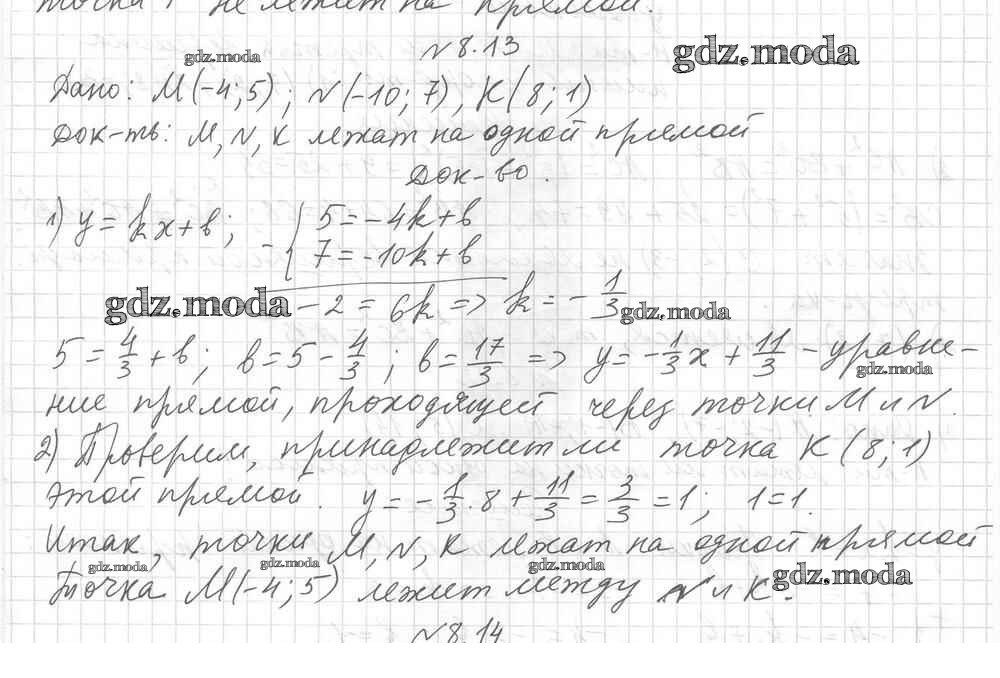 точка 1 не лежит на прямой.
N 8.13
gdz.moda
gdz.moda
Дано: M(-4;5); N(-10;7), K(8;1)
Док-ть: M, N, K лежат на одной прямой
Док-во.
1) y = kx + b; - { 5 = -4k + b
7 = -10k + b
-2 = 6k => k = -1/3
gdz.moda
gdz.moda
5 = 4/3 + b; b = 5 - 4/3; b = 17/3 => y = -1/3 x + 11/3 - уравне-
gdz.moda
ние прямой, проходящей через точки M и N.
2) Проверим, принадлежит ли точка K (8;1)
этой прямой. y = -1/3 · 8 + 11/3 = 3/3 = 1; 1 = 1.
Итак, точки M, N, K лежат на одной прямой
gdz.moda
gdz.moda
gdz.moda
gdz.moda
Точка M(-4;5) лежит между N и K.
N 8.14